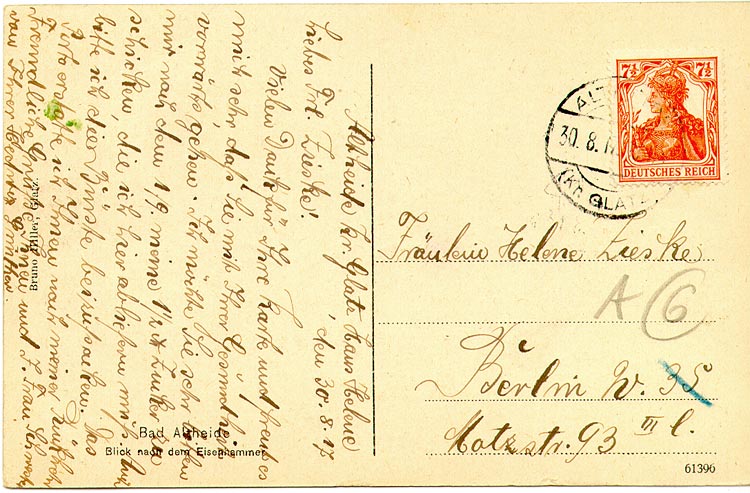 Altheide Kr. Glatz Haus Helene
den 30.8.17
Liebes Frl. Zieske!
Vielen Dank für Ihre Karte und freut es
mich sehr, daß Sie mit Ihrer Gesundheit
vorwärts gehen. Ich möchte Sie schicken
mir nach dem 1/9. meine 1/2 Zucker
schicken, die ich hier abliefern muß,
bitte ich die Bürste beizupacken. Das
erstatte ich Ihnen nach meiner Rückkehr
Freundliche Grüße Ihnen und Frau
von Ihrer
Bruno Hiller, Glatz.
Bad Altheide
Blick nach dem Eisenhammer
7½ 7½
DEUTSCHES REICH
ALT
30.8.17
(Kr. GLATZ
Fräulein Helene Zieske
A 6
Berlin W. 35
Motzstr. 93 III l.
61396